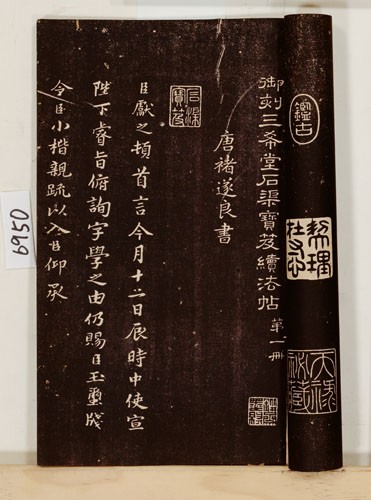 御刻三希堂石渠寶芨續法帖 第一冊
唐褚遂良書
臣獻之頓首言今月十二日辰時中使宣
陛下睿旨俯詢字學之由仍賜臣玉璽牋
令臣小楷親疏以入臣仰承
鑑古
石渠
寶芨
6950